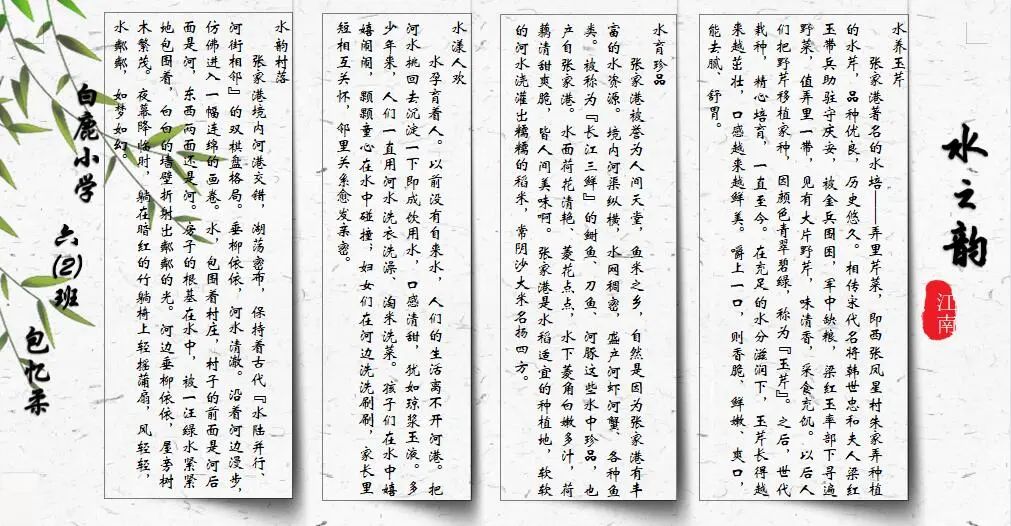 水之韵
江南
水养玉芹
张家港著名的水培——弄里芹菜，即西张凤星村朱家弄种植
的水芹，品种优良，历史悠久。相传宋代名将韩世忠和夫人梁红
玉带兵助驻守庆安，被金兵围困，军中缺粮，梁红玉率部下寻遍
野菜，值弄里一带，见有大片野芹，味清香，采食充饥。以后人
们把野芹移植家种，因颜色青翠碧绿，称为『玉芹』。之后，世代
栽种，精心培育，一直至今。在充足的水分滋润下，玉芹长得越
来越茁壮，口感越来越鲜美。嚼上一口，则香脆、鲜嫩、爽口，
能去腻、舒胃。
水育珍品
张家港被誉为人间天堂，鱼米之乡，自然是因为张家港有丰
富的水资源。境内河渠纵横，水网稠密，盛产河虾河蟹、各种鱼
类。被称为『长江三鲜』的鲥鱼、刀鱼、河豚这些水中珍品，也
产自张家港。水面荷花清艳、菱花点点，水下菱角白嫩多汁，荷
藕清甜爽脆，皆人间美味啊。张家港是水稻适宜的种植地，软软
的河水浇灌出糯糯的稻米，常阴沙大米名扬四方。
水漾人欢
水孕育着人。以前没有自来水，人们的生活离不开河港。把
河水挑回去沉淀一下即成饮用水，口感清甜，犹如琼浆玉液。多
少年来，人们一直用河水洗衣洗澡、淘米洗菜。孩子们在水中嬉
嬉闹闹，颗颗童心在水中碰撞；妇女们在河边洗洗刷刷，家长里
短相互关怀，邻里关系愈发亲密。
水韵村落
张家港境内河港交错，湖荡密布，保持着古代『水陆并行、
河街相邻』的双棋盘格局。垂柳依依，河水清澈。沿着河边漫步，
仿佛进入一幅连绵的画卷。水，包围着村庄，村子的前面是河后
面是河，东西两面还是河。房子的根基在水中，被一汪绿水紧紧
地包围着，白白的墙壁折射出粼粼的光。河边垂柳依依，屋旁树
木繁茂。夜幕降临时，躺在暗红的竹躺椅上轻摇蒲扇，风轻轻，
水粼粼，如梦如幻。
白鹿小学 六(2)班 包忆柔